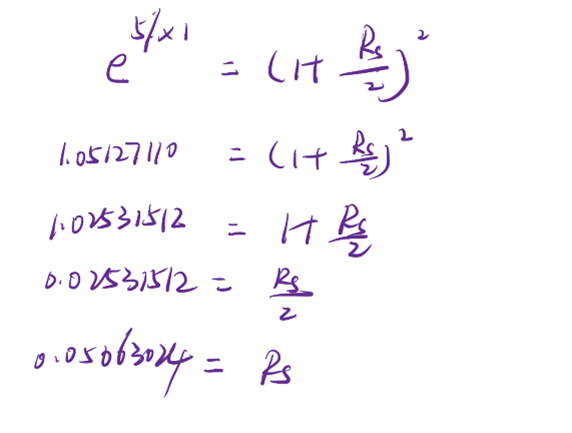 e^{5%×1} = (1+ \frac{Rs}{2})^2
1.05127110 = (1+ \frac{Rs}{2})^2
1.02531512 = 1+ \frac{Rs}{2}
0.02531512 = \frac{Rs}{2}
0.05063024 = Rs